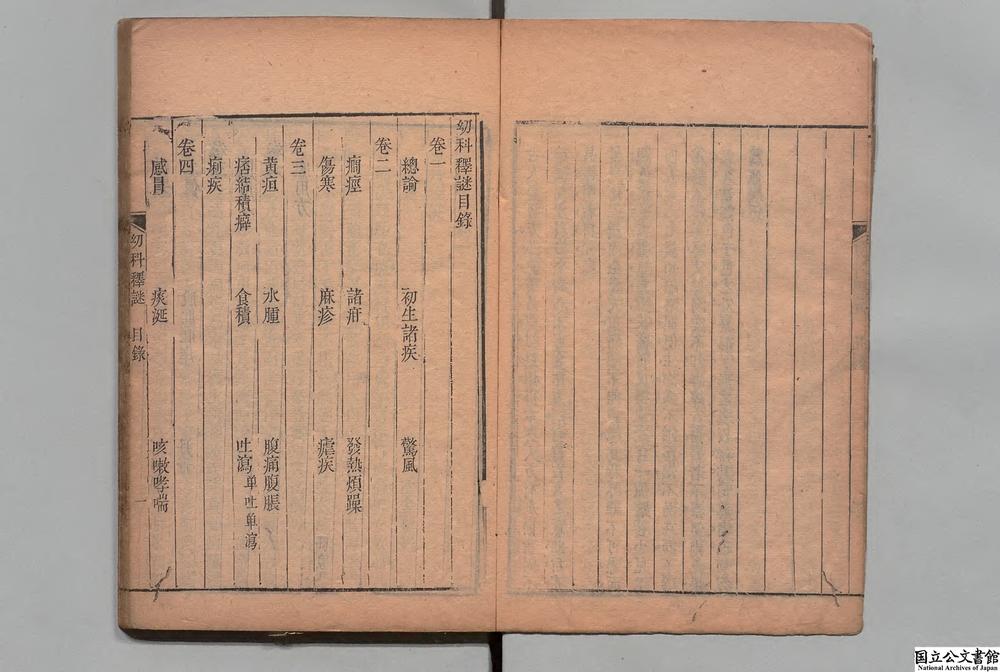 幼科釋謎目錄
卷一
總論　初生諸疾　驚風
卷二
癇痙　諸疳　發熱煩躁
傷寒　麻疹　瘧疾
卷三
黃疸　水腫　腹痛腹脹
痞結積癖　食積　吐瀉單吐單瀉
痢疾
卷四
感冒　痰涎　咳嗽哮喘
幼科釋謎　目錄　一
国立公文書館
National Archives of Japan